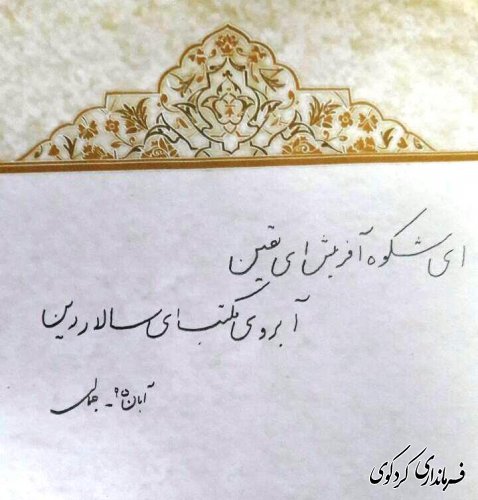 ای شکوه آفرینش ای یقین
آبروی مکتب ای سالار دین
آبان ۹۵ - جمالی
فرمانداری کردکوی